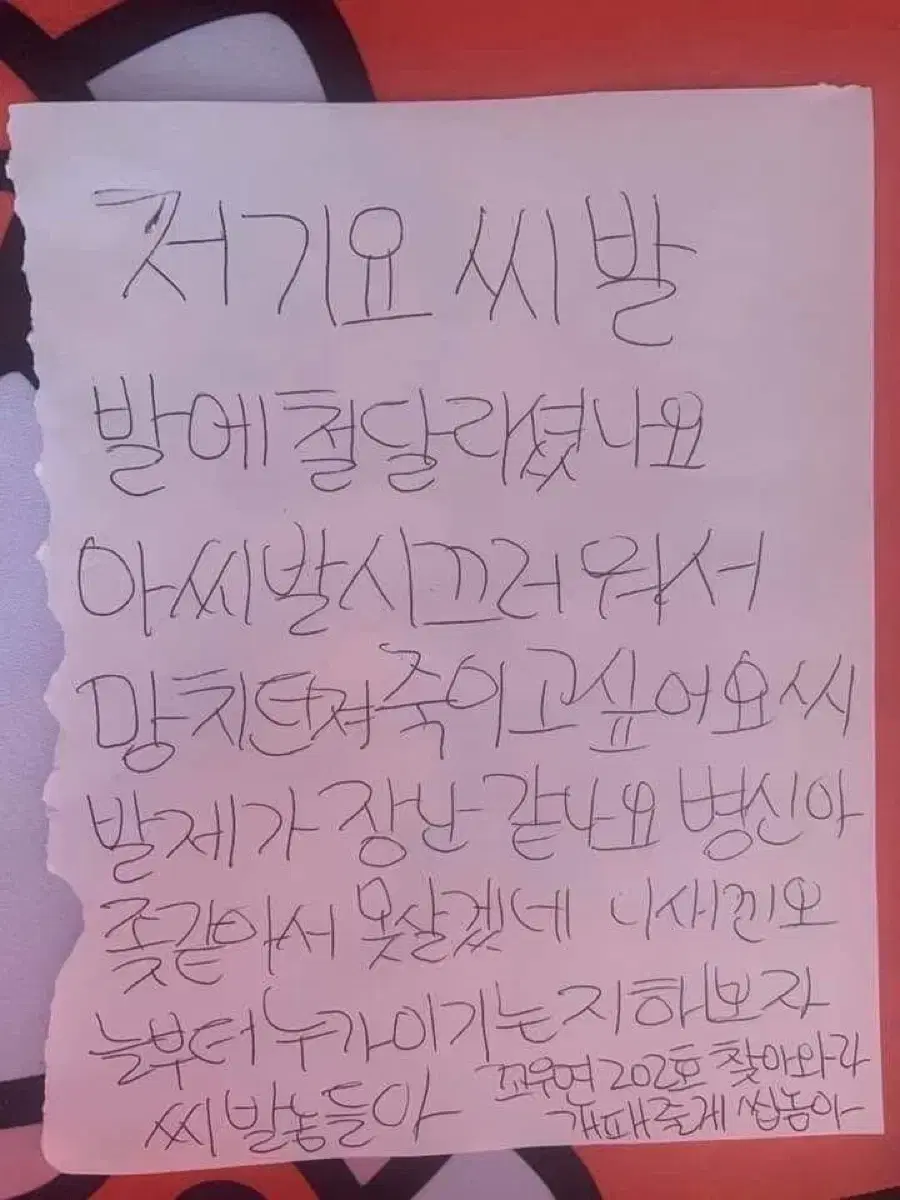 저기요 씨발
발에 철달리셨나요
아씨발시끄러워서
망치던져죽이고싶어요씨
발제가 장난 같나요 병신아
좆같아서 못살겠네 니새낀오
늘부터누가이기는지해보자
씨발놈들아
꼬우면 202호 찾아와라
개패줄게 씹놈아